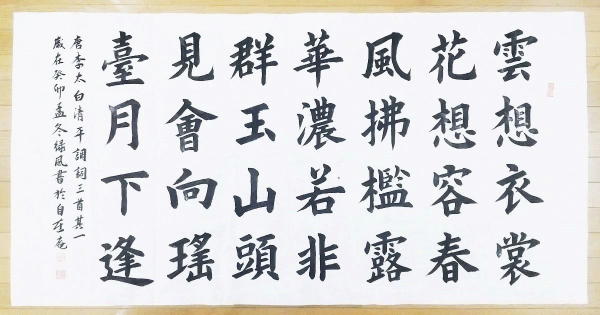 雲想衣裳
花想容春
風拂檻露
華濃若非
群玉山頭
見會向瑤
臺月下逢
唐李太白清平調詞三首其一
歲在癸卯孟冬緑風書於自在庵